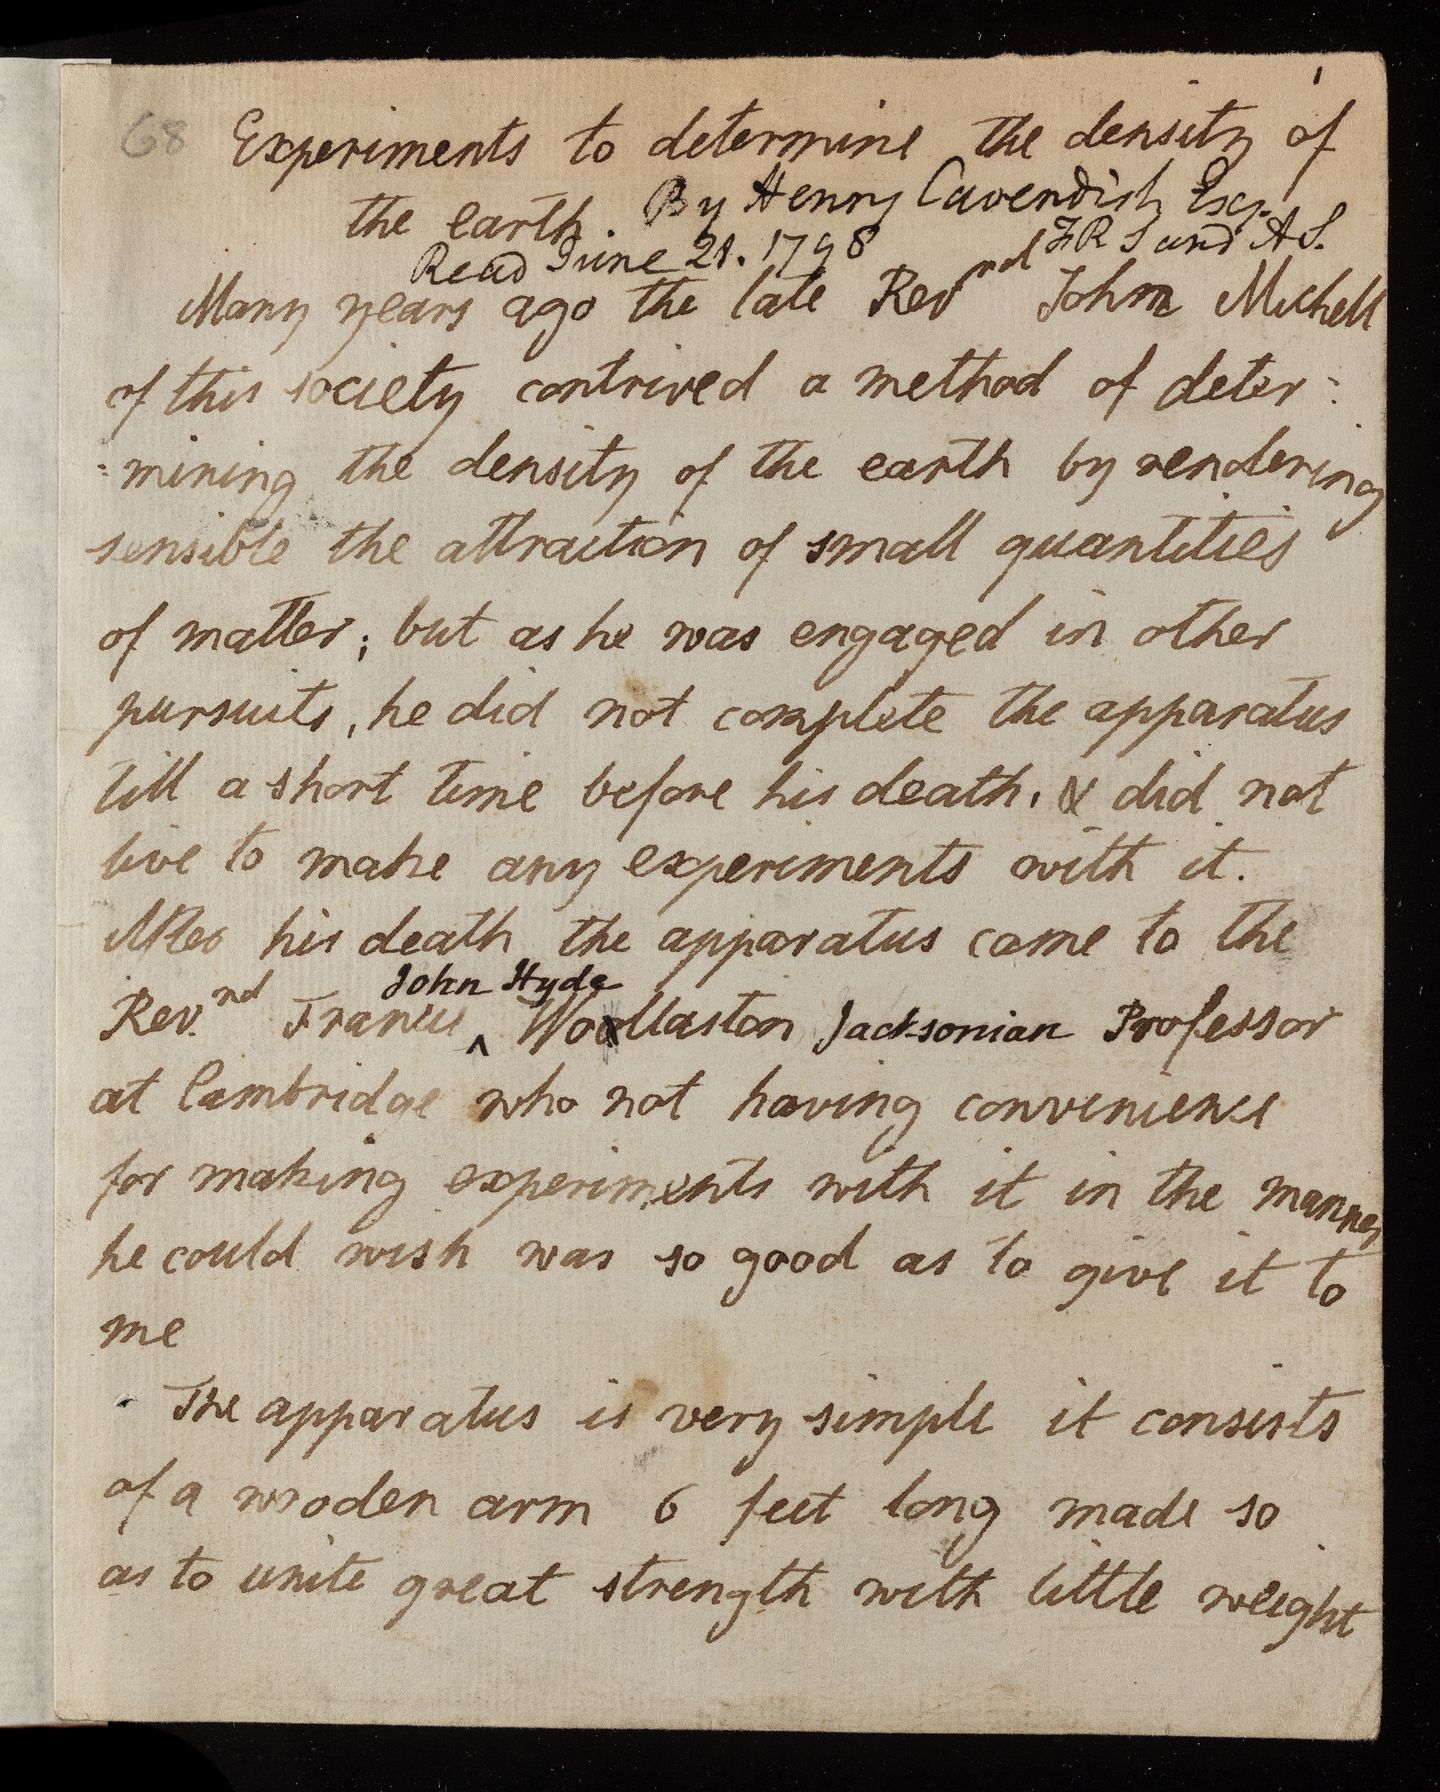 1
68
Experiments to determine the density of
the earth By Henry Cavendish Esq.
F R S and A S.
Read June 21. 1798
Many years ago the late Rev^nd John Michell
of this society contrived a method of deter:
:mining the density of the earth by rendering
sensible the attraction of small quantities
of matter; but as he was engaged in other
pursuits, he did not complete the apparatus
till a short time before his death, & did not
live to make any experiments with it.
After his death the apparatus came to the
John Hyde
Rev.^nd Francis ^ Woollaston Jacksonian Professor
at Cambridge who not having convenience
for making experiments with it in the manner
he could wish was so good as to give it to
me
The apparatus is very simple it consists
of a wooden arm 6 feet long made so
as to unite great strength with little weight